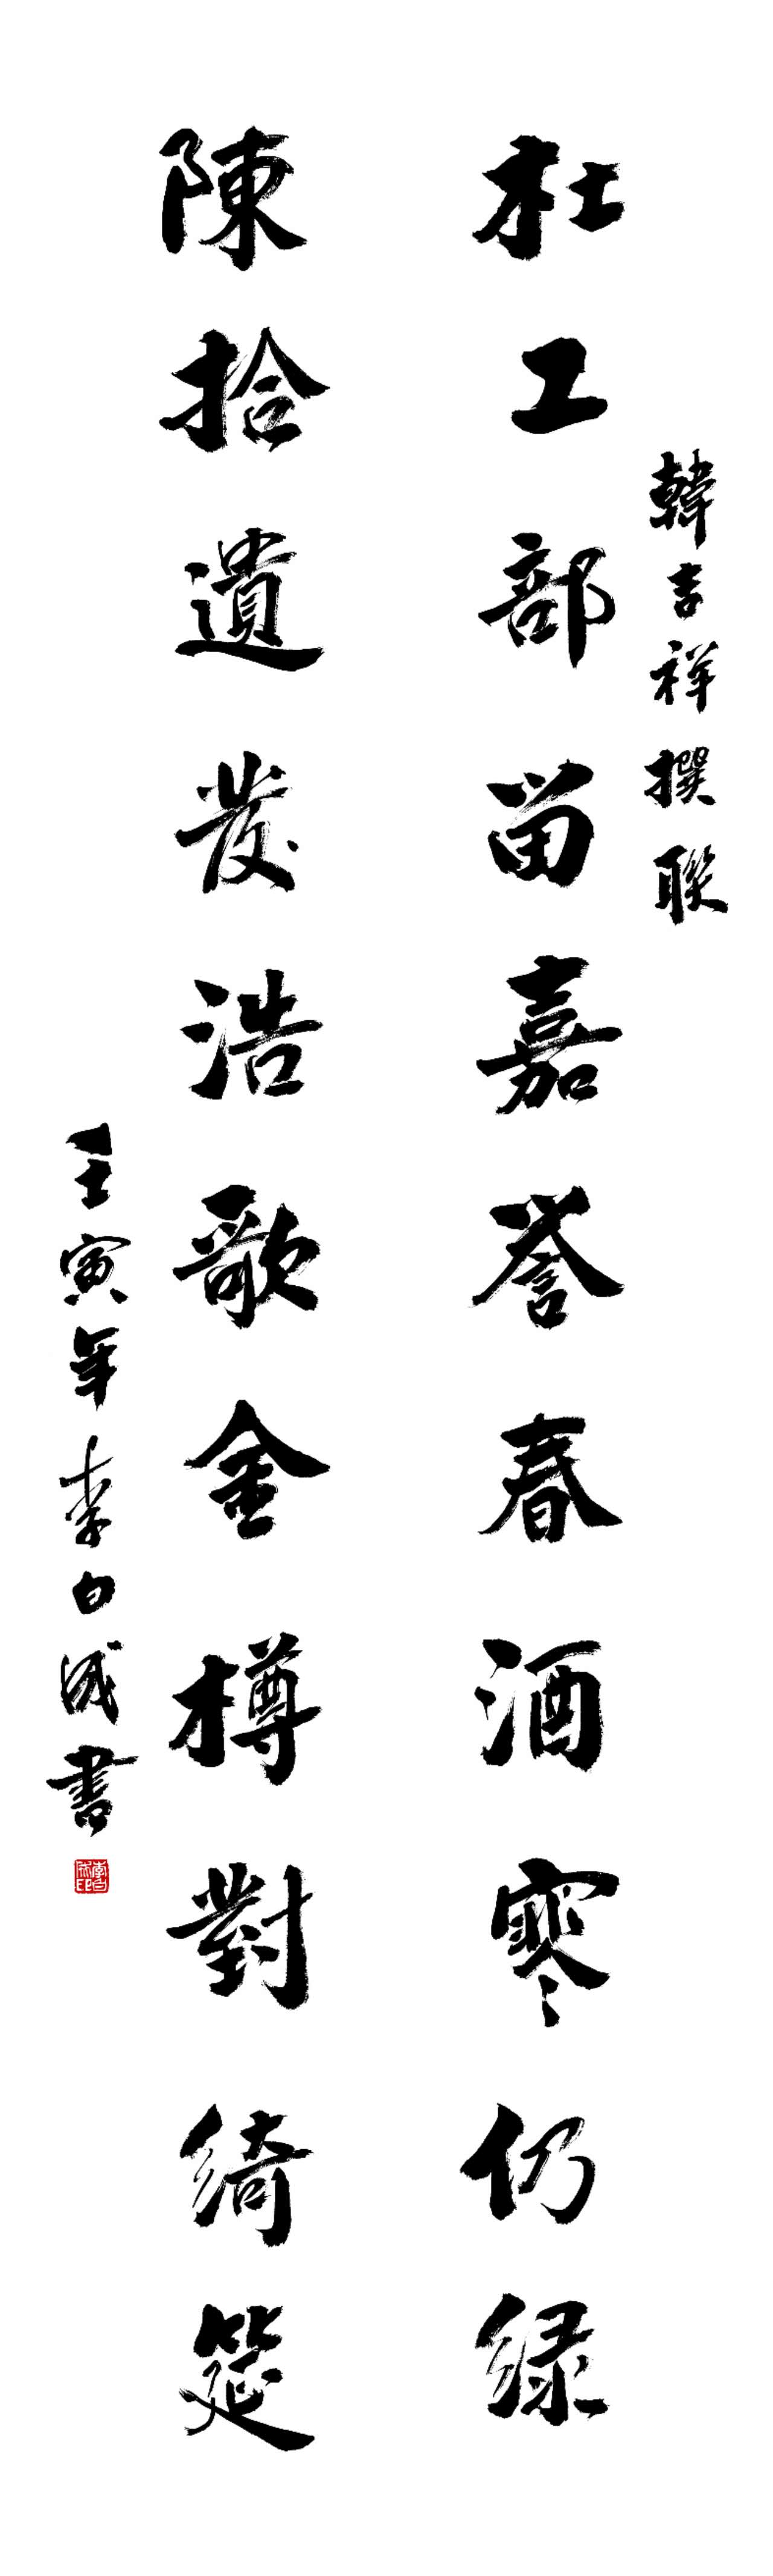 韓吉祥撰聯
杜工部留嘉誉春酒寒仍绿
陳拾遺發浩歌金樽對綺筵
壬寅年李白成書